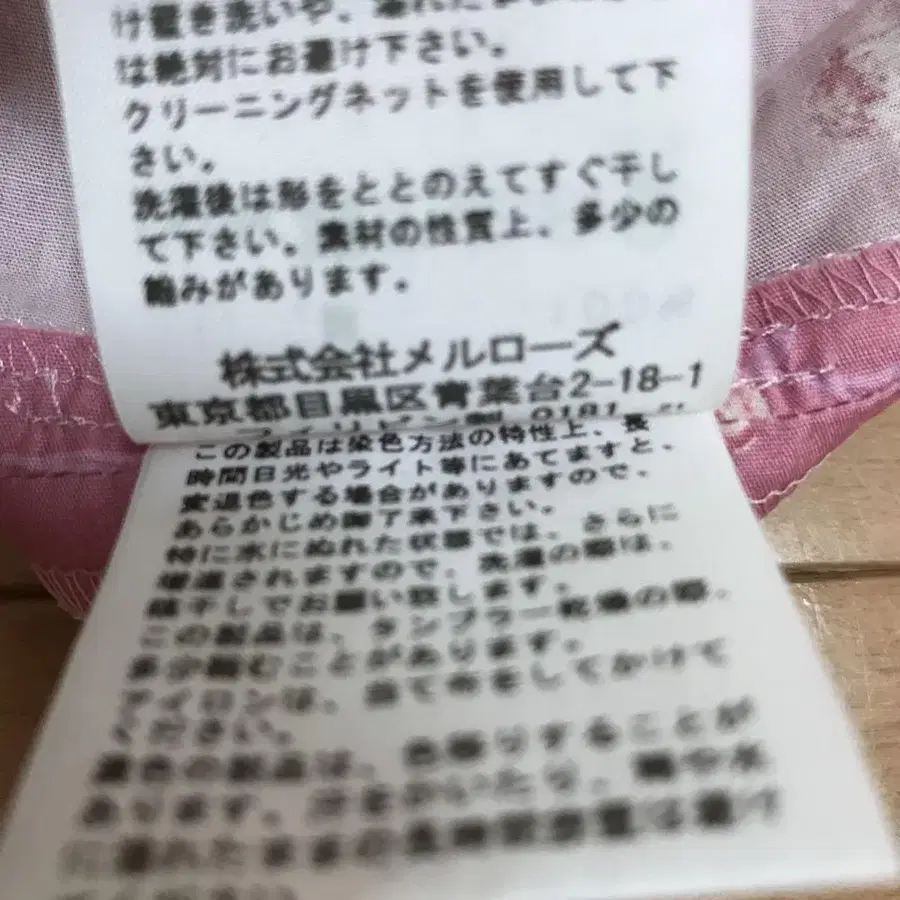 け置き洗いや、濡れたまま
は絶対にお避け下さい。
クリーニングネットを使用して下
さい。
洗濯後は形をととのえてすぐ干し
て下さい。素材の性質上、多少の
縮みがあります。
株式会社メルローズ
東京都目黒区青葉台2-18-1
フィリピン製 0181
この製品は染色方法の特性上、長
時間日光やライト等にあてますと、
変退色する場合がありますので、
あらかじめ御了承下さい。
特に水にぬれた状態では、さらに
増進されますので、洗濯の際は、
陰干しでお願い致します。
この製品は、タンブラー乾燥の際、
多少縮むことがあります。
アイロンは、当て布をしてかけて
ください。
濃色の製品は、色移りすることが
あります。汗をかいたり、雨や水
に濡れたままの長時間放置は避け
てください。